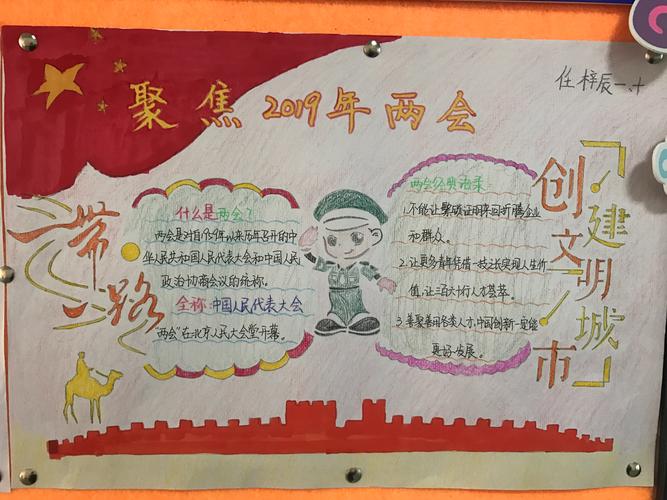 聚焦2019年两会
任梓辰一.十
一带一路
什么是两会?
两会是对自1959年以来历年召开的中
华人民共和国人民代表大会和中国人民
政治协商会议的统称。
全称:中国人民代表大会
"两会"在北京人民大会堂开幕。
两会经典语录
1.不能让繁琐证明来回折腾企业
和群众。
2.让更多青年凭借一技之长实现人生价
值,让三百六十行人才荟萃。
3.善聚善用各类人才,中国创新一定能
更好发展。
创文明城市
建